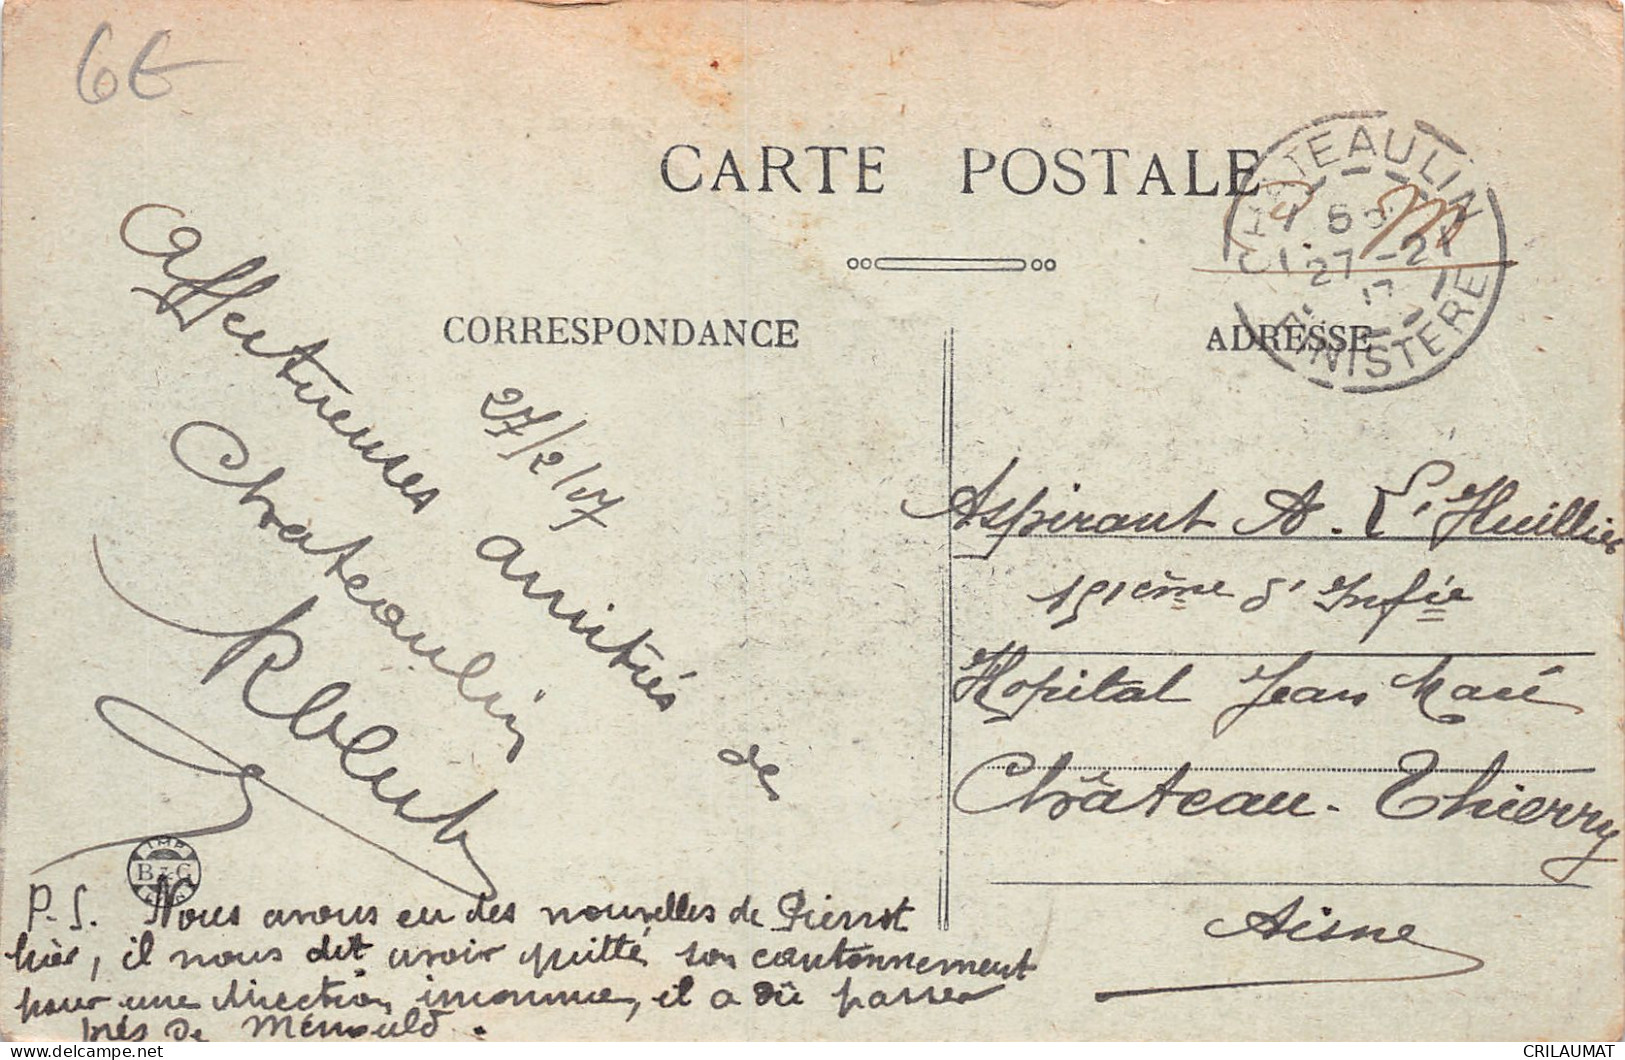 6€
CARTE POSTALE
F M
CHATEAULIN
27-2
FINISTERE
CORRESPONDANCE
ADRESSE
27/2/17
Affectueuses amitiés de
Chateaulin
Robert
Aspirant A. L'Huillier
151ème d'Infie
Hopital Jean Macé
Château-Thierry
Aisne
IMP
B & G
P-S. Nous avons eu des nouvelles de Pierrot
hier, il nous dit avoir quitté son cantonnement
pour une direction inconnue, il a dû passer
près de Ménould.
CRILAUMAT